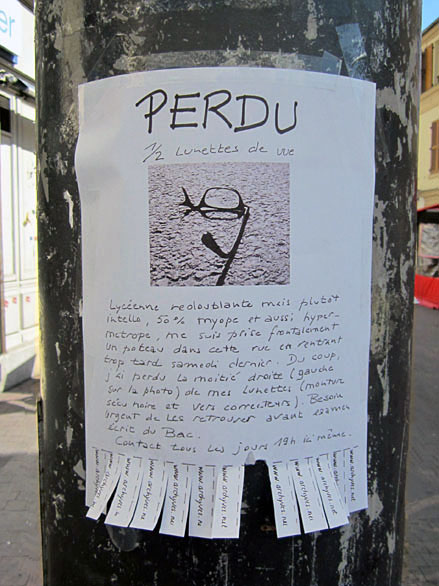 er
PERDU
1/2 Lunettes de vue
Lycéenne redoublante mais plutôt
intello, 50% myope et aussi hyper-
metrope, me suis prise frontalement
un poteau dans cette rue en rentrant
trop tard samedi dernier. Du coup,
j'ai perdu la moitié droite (gauche
sur la photo) de mes lunettes (monture
sécu noire et vers correcteurs). Besoin
urgent de les retrouver avant examen
écrit du Bac.
Contact tous les jours 19h ici même.
www.archyves.net
www.archyves.net
www.archyves.net
www.archyves.net
www.archyves.net
www.archyves.net
www.archyves.net
www.archyves.net
www.archyves.net
www.archyves.net